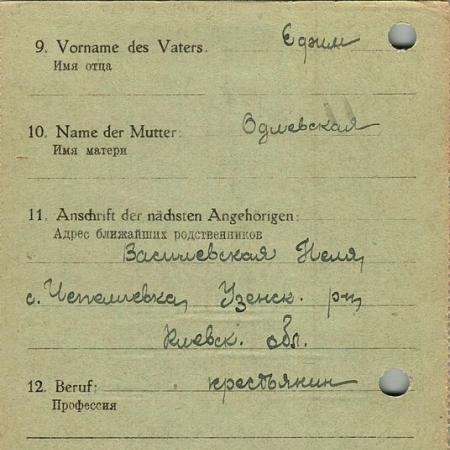 9. Vorname des Vaters: Ефим
Имя отца
10. Name der Mutter:
Имя матери
11. Anschrift der nächsten Angehörigen:
Адрес ближайших родственников
Василевская Неля,
с. Чепелиевка, Узенск. рн,
Киевск. обл.
12. Beruf: крестьянин
Профессия